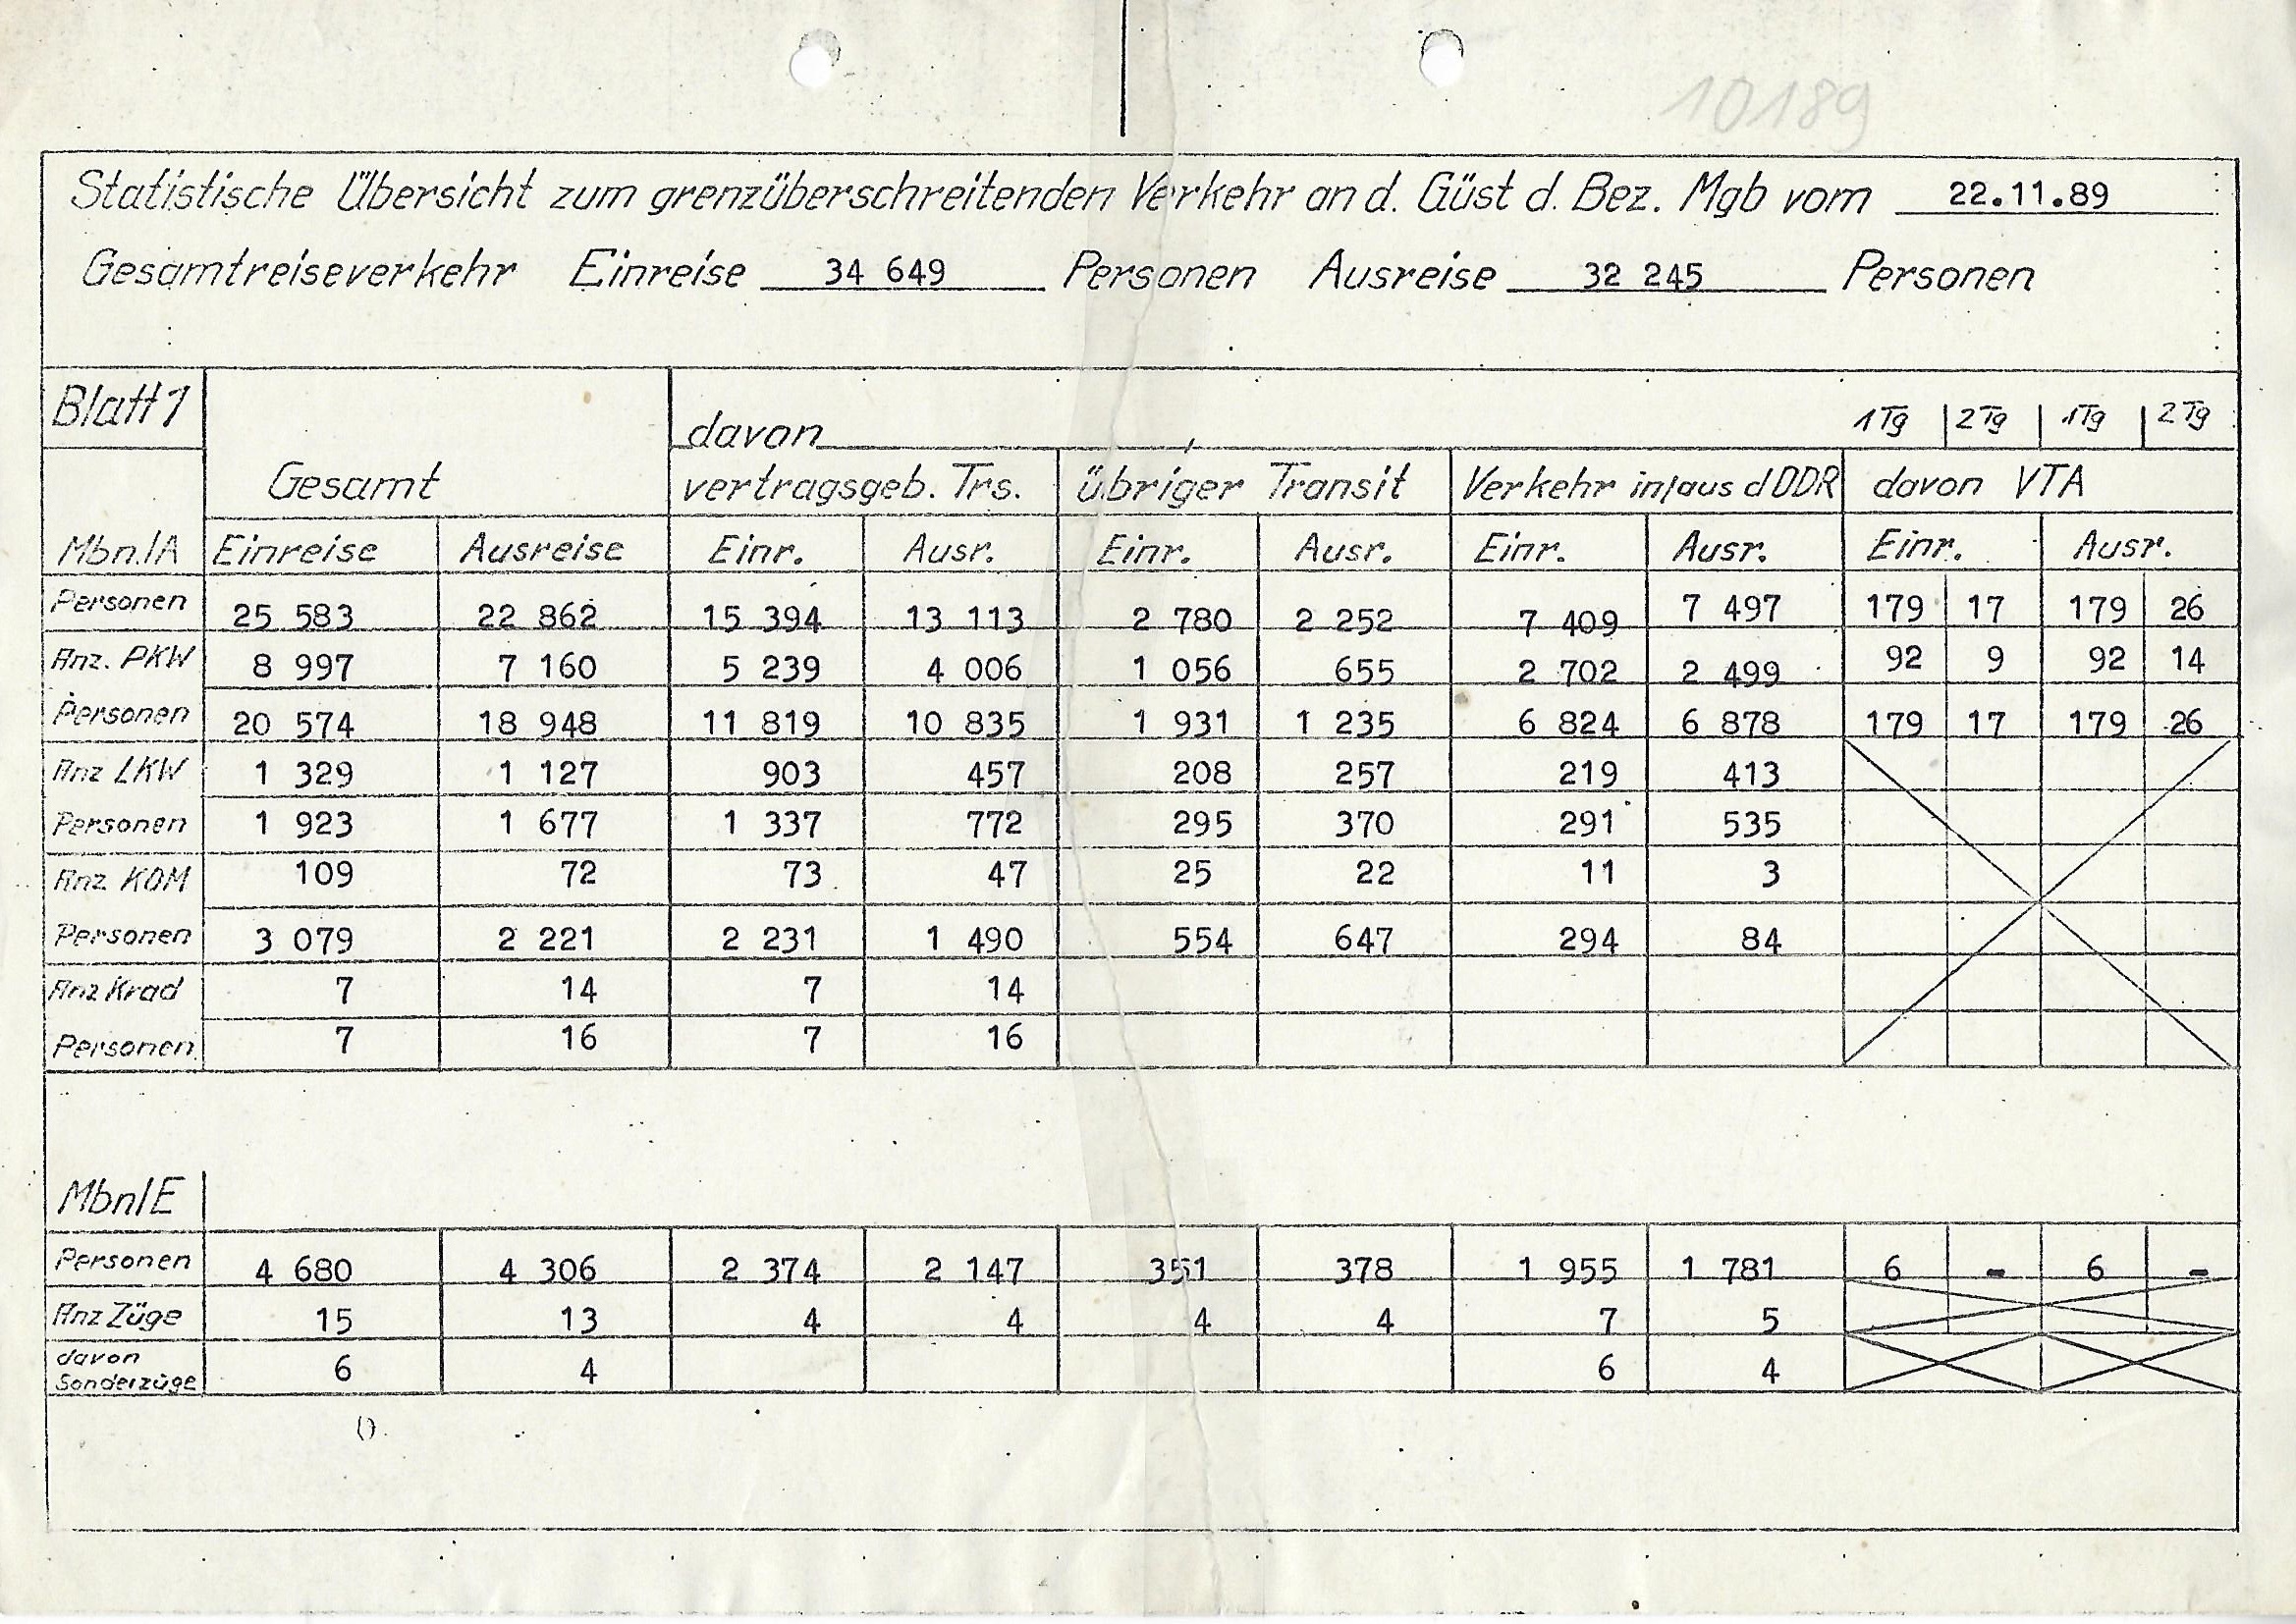 10189
Statistische Übersicht zum grenzüberschreitenden Verkehr an d. Güst d. Bez. Mgb vom 22.11.89
Gesamtreiseverkehr Einreise 34 649 Personen Ausreise 32 245 Personen
Blatt 1 davon 1 Tg 2 Tg 1 Tg 2 Tg
Gesamt vertragsgeb. Trs. übriger Transit Verkehr in/aus d DDR davon VTA
Mbn./A Einreise Ausreise Einr. Ausr. Einr. Ausr. Einr. Ausr. Einr. Ausr.
Personen 25 583 22 862 15 394 13 113 2 780 2 252 7 409 7 497 179 17 179 26
Anz. PKW 8 997 7 160 5 239 4 006 1 056 655 2 702 2 499 92 9 92 14
Personen 20 574 18 948 11 819 10 835 1 931 1 235 6 824 6 878 179 17 179 26
Anz LKW 1 329 1 127 903 457 208 257 219 413
Personen 1 923 1 677 1 337 772 295 370 291 535
Anz KOM 109 72 73 47 25 22 11 3
Personen 3 079 2 221 2 231 1 490 554 647 294 84
Anz Krad 7 14 7 14
Personen 7 16 7 16
Mbn/E
Personen 4 680 4 306 2 374 2 147 351 378 1 955 1 781 6 - 6 -
Anz Züge 15 13 4 4 4 4 7 5
davon
Sonderzüge 6 4 6 4